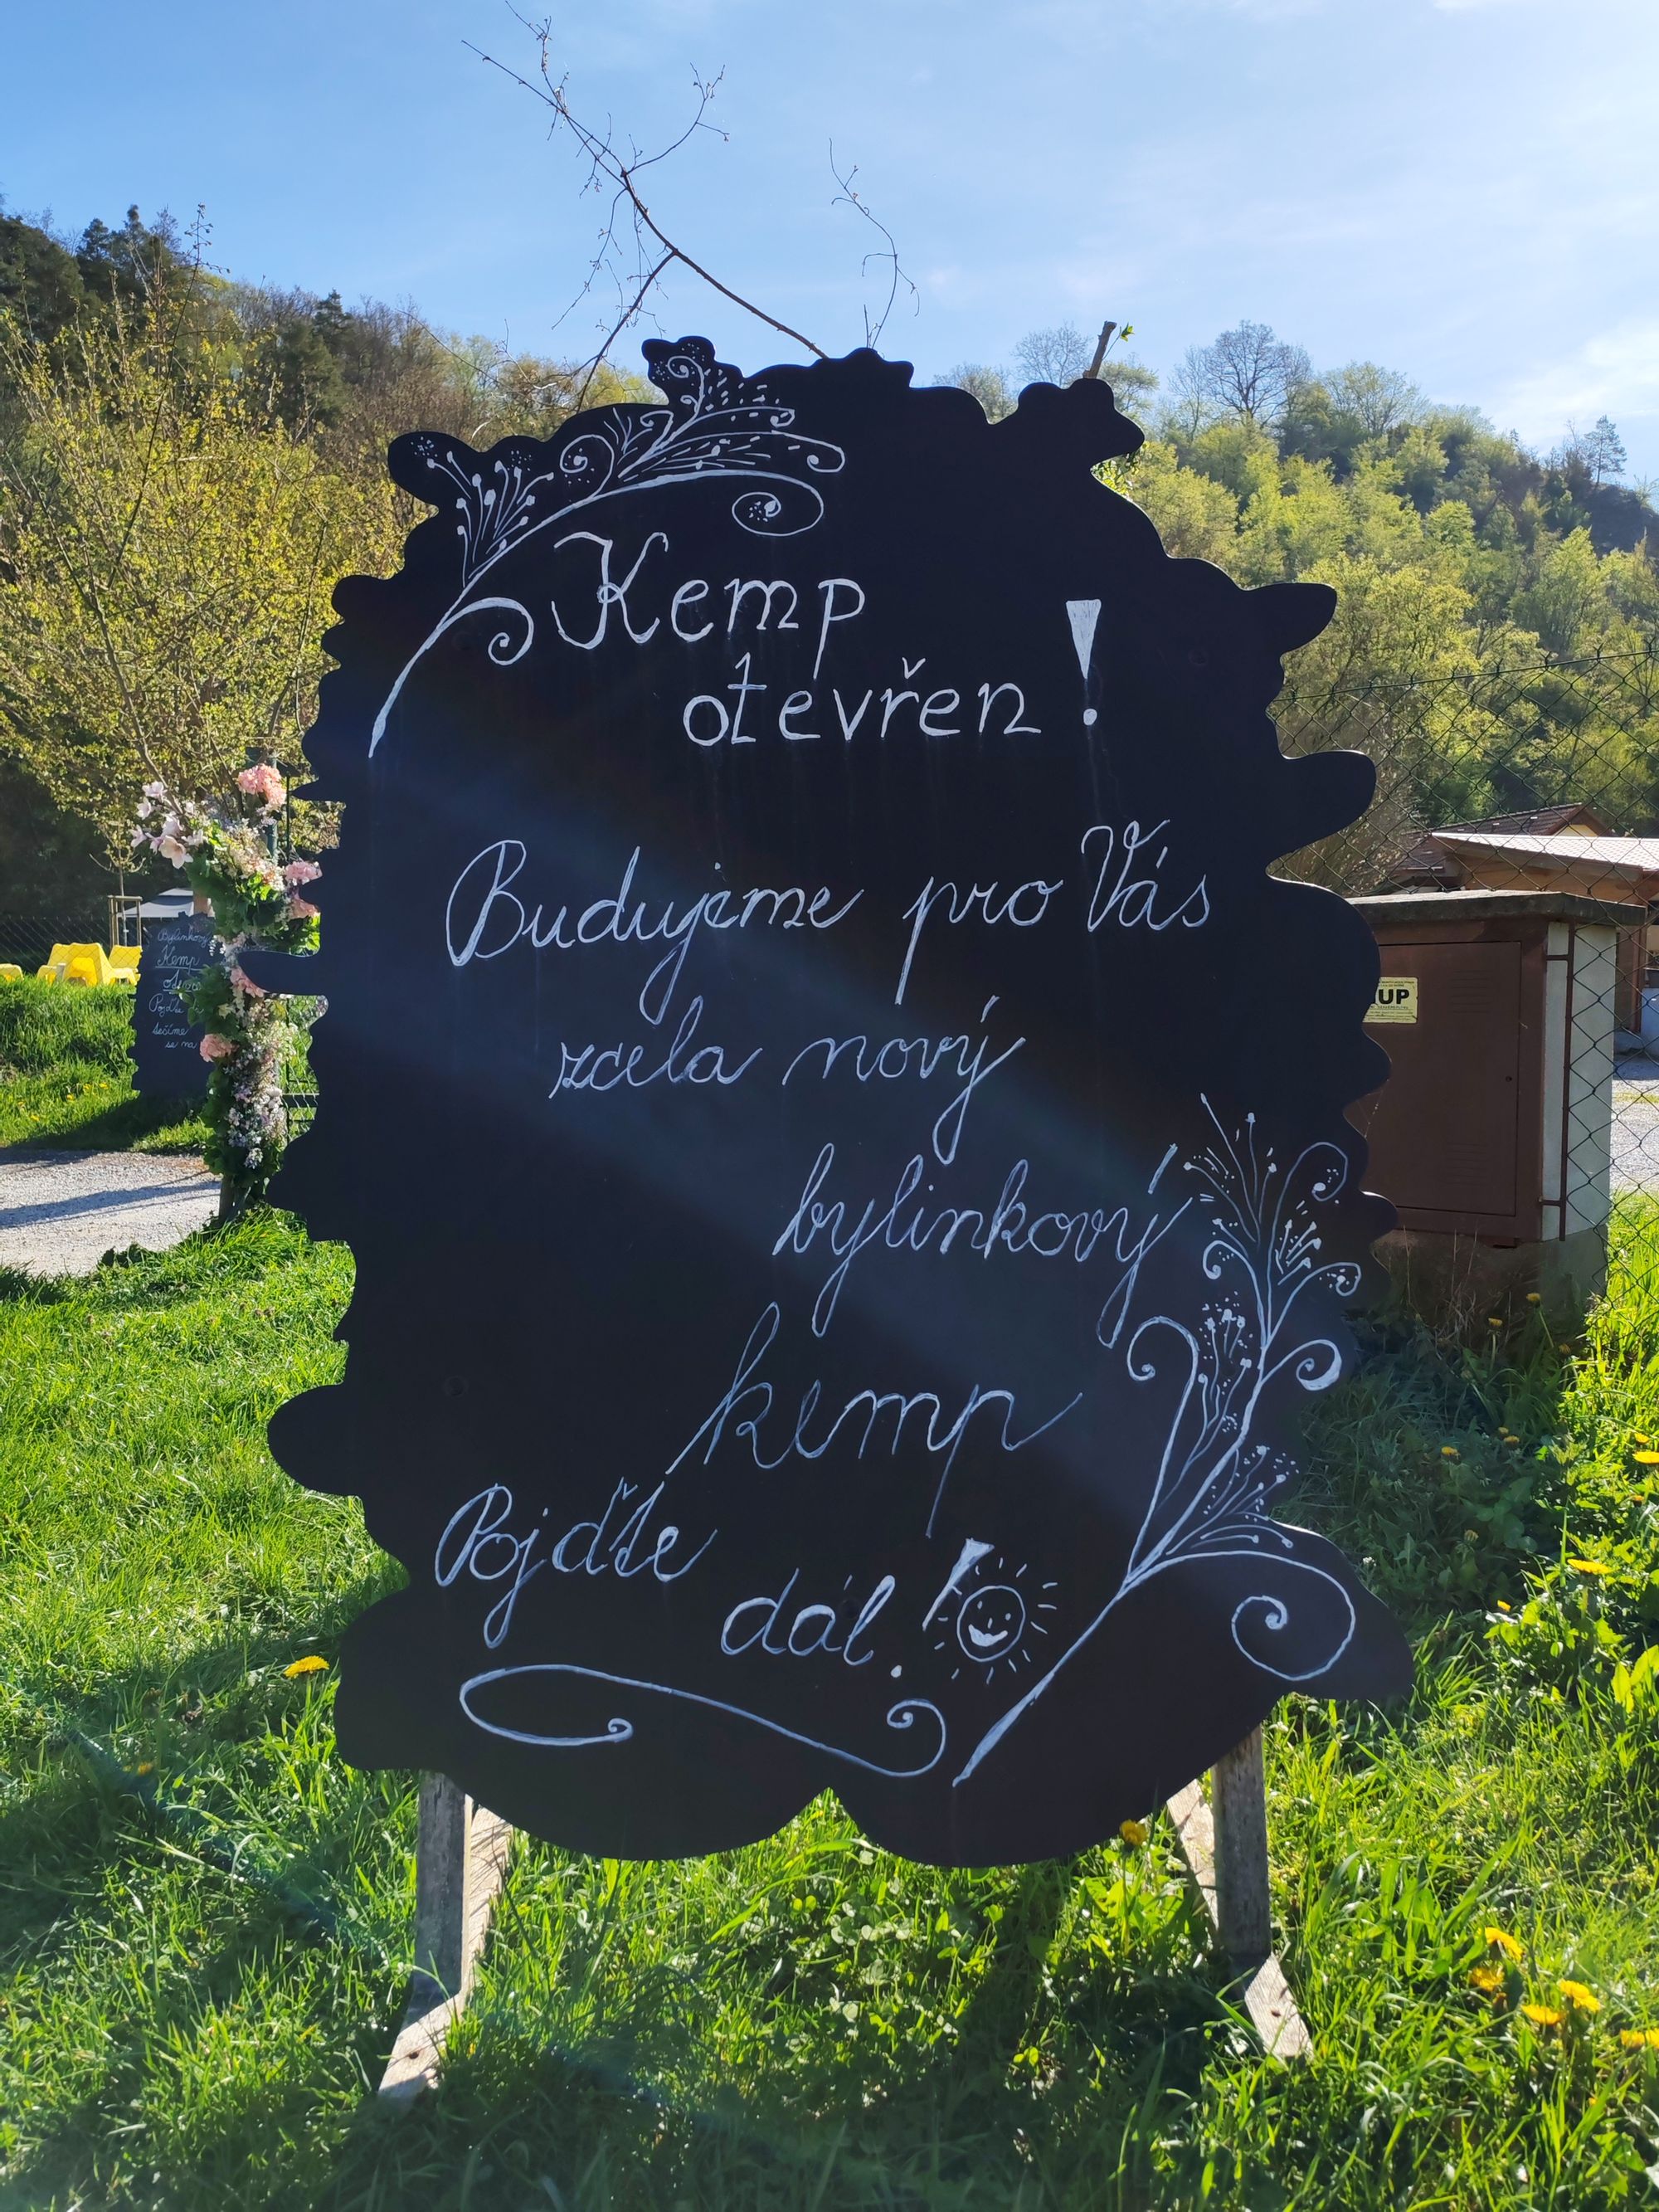 Kemp
otevřen!
Budujeme pro Vás
zcela nový
bylinkový
kemp
Pojďte
dál!
Bylinkový
Kemp
Pojďte
těšíme
se na
HUP